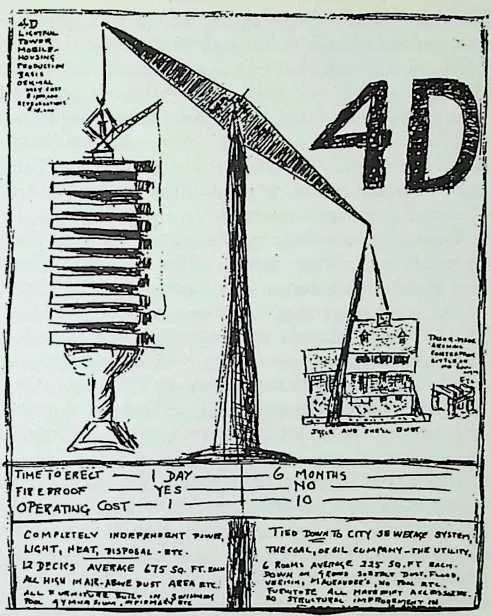 4D
LIGHTFUL
TOWER
MOBILE-
HOUSING
PRODUCTION
BASIS
ORIGINAL
MAY COST
REPRODUCTIONS
4D
TAILOR-MADE
ARCHAIC
CONTRAPTION
LITTLE OR
NO LAW
ETC
TIME TO ERECT — 1 DAY — 6 MONTHS
FIREPROOF — YES — NO
OPERATING COST — 1 — 10
COMPLETELY INDEPENDENT POWER,
LIGHT, HEAT, DISPOSAL - ETC.
12 DECKS AVERAGE 675 SQ. FT. EACH
ALL HIGH IN AIR-ABOVE DUST AREA ETC.
ALL FURNITURE BUILT IN, SWIMMING
POOL GYMNASIUM, INFIRMARY ETC
TIED DOWN TO CITY SEWERAGE SYSTEM,
THE COAL, OR OIL COMPANY - THE UTILITY,
6 ROOMS AVERAGE 225 SQ. FT EACH.
DOWN ON GROUND SUBJECT DUST, FLOOD,
VERMIN, MARAUDERS, NO POOL ETC.
FURNITURE ALL MAKESHIFT ACCESSORIES.
NO STRUCTURAL IMPROVEMENT IN